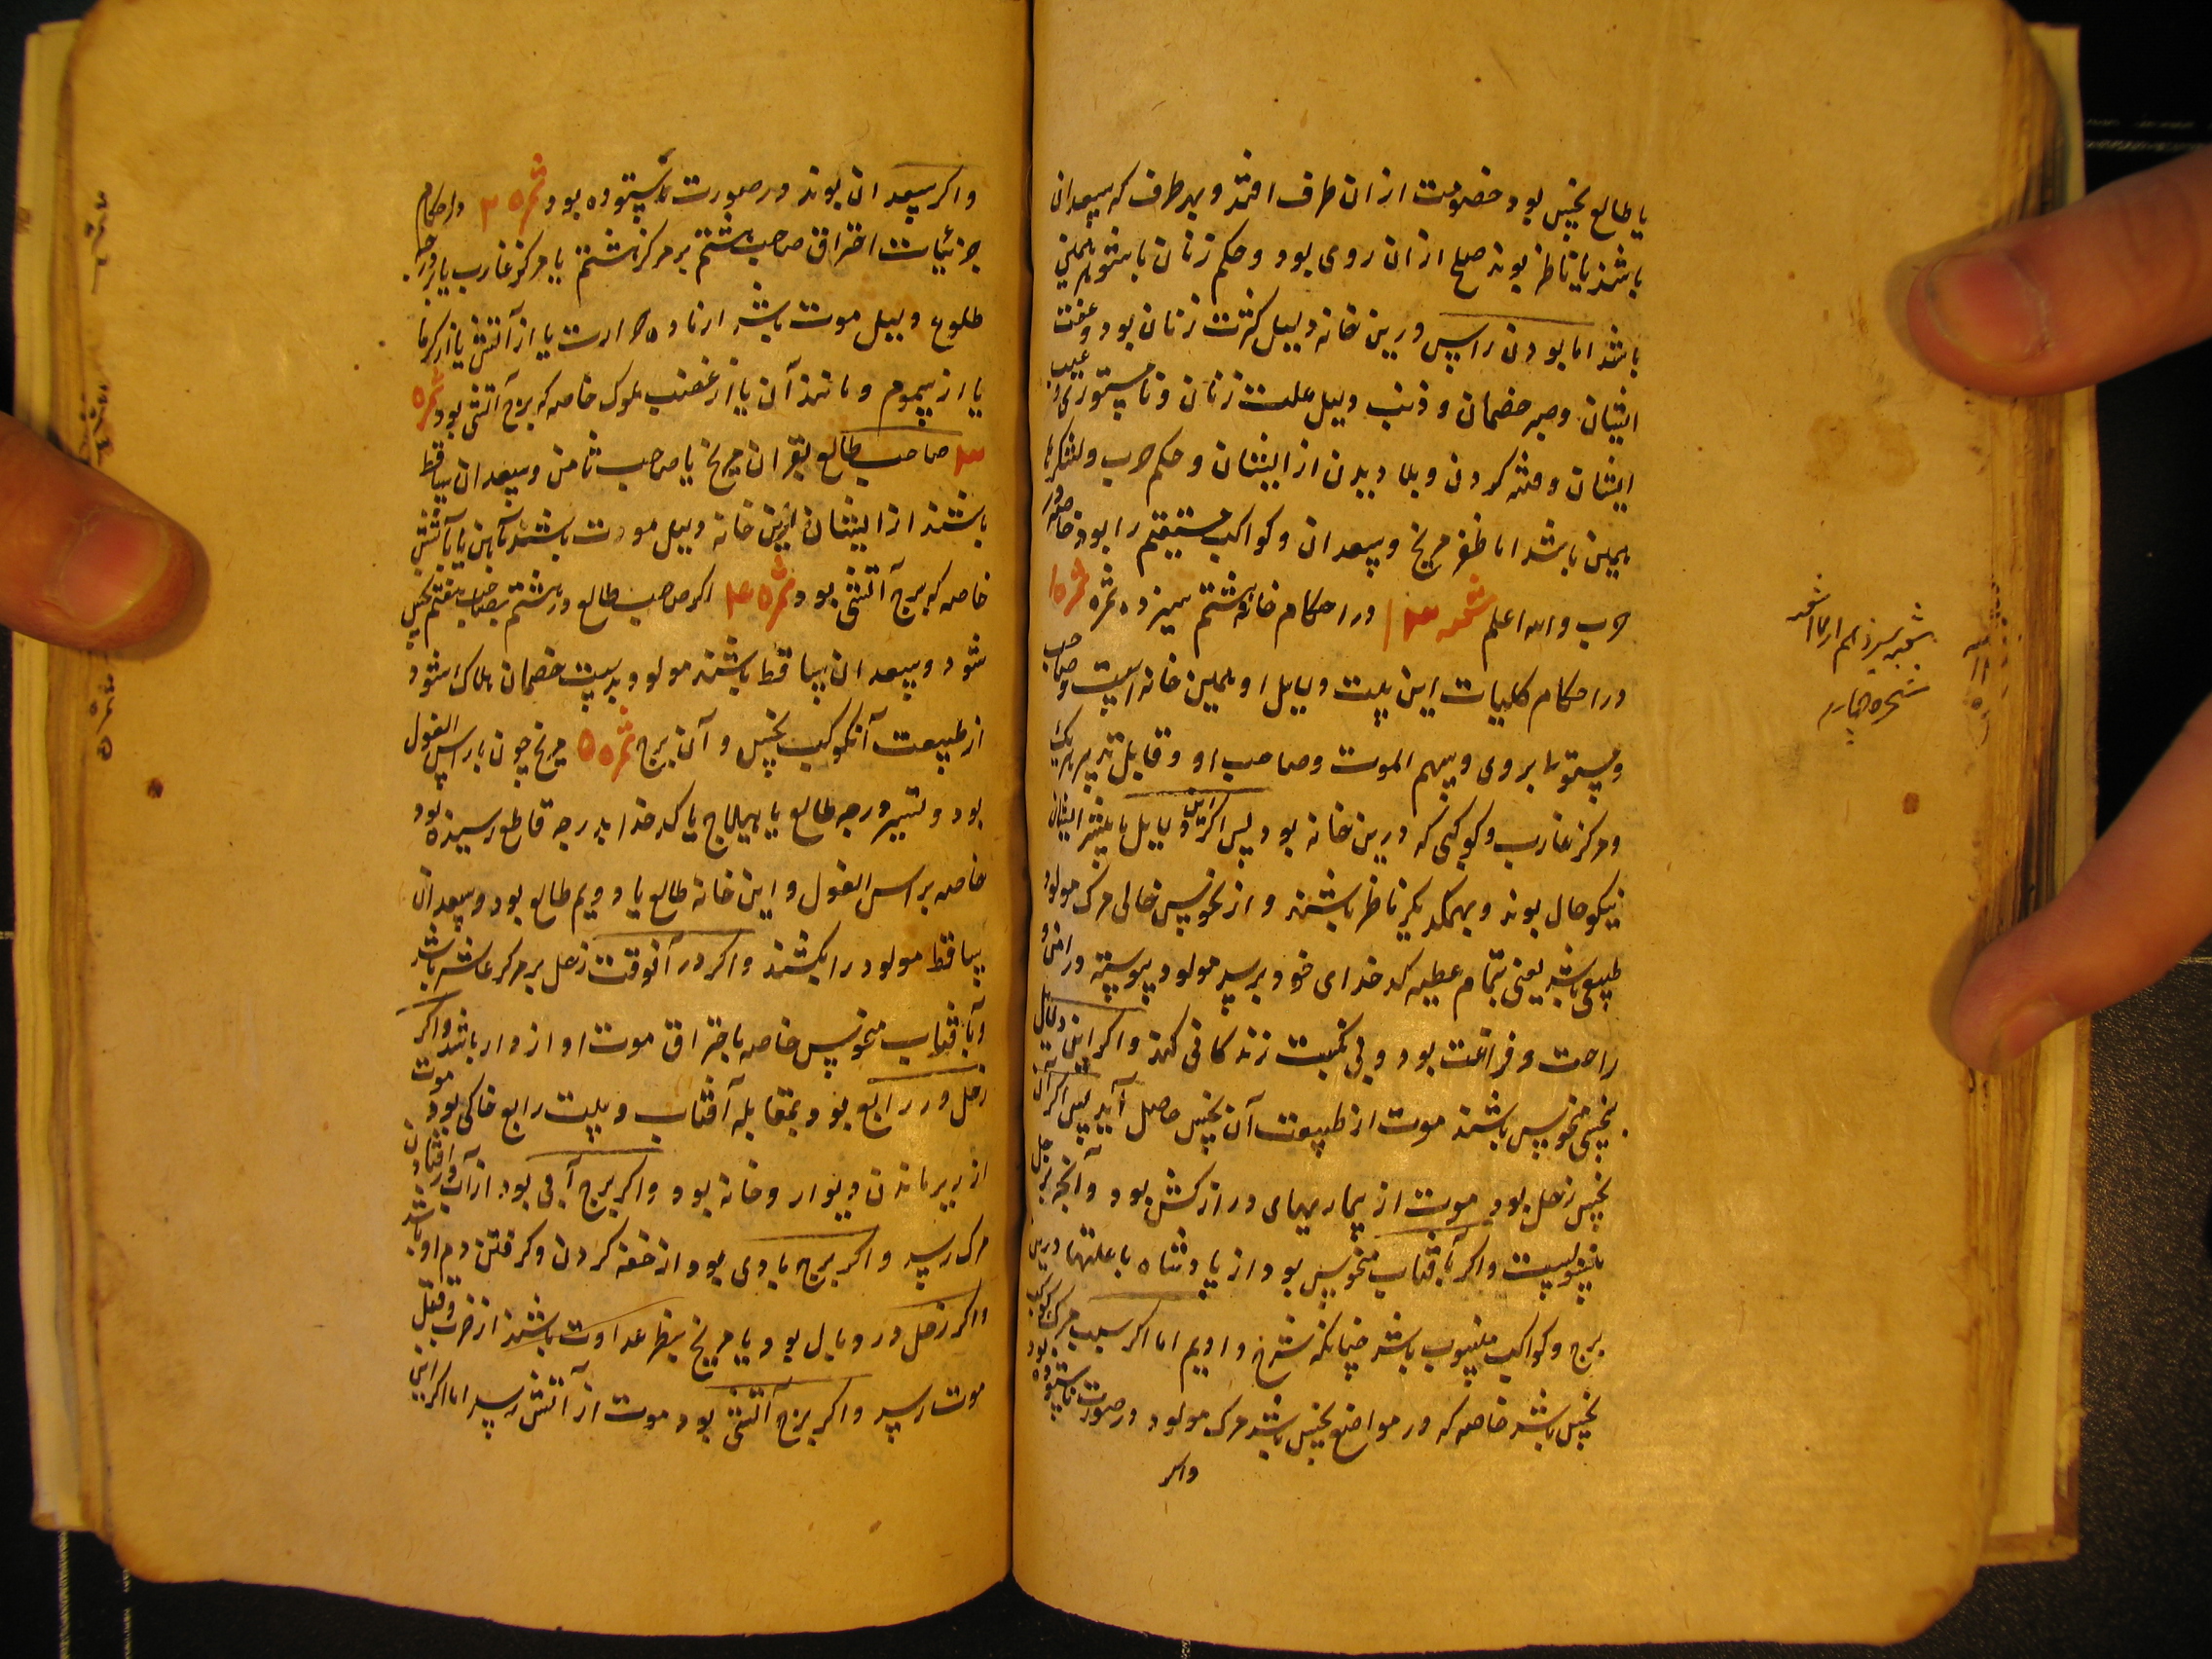 یا طالع نحس بود خصومت از ان طرف افتد و بهر طرف که سعدان
باشند یا ناظر بوند صلح از ان روی بود و حکم زنان با شوهر همین
باشد اما بودن راس درین خانه دلیل کثرت زنان بود و عفت
ایشان و صبر خصمان و ذنب دلیل علت زنان و نامستوری و عیب
ایشان و فتنه کردن و بلا دیدن از ایشان و حکم حرب و لشکرها
همین باشد اما ظفر مریخ و سعدان و کواکب مستقیم را بود خاصه در
حرب والله اعلم شعبه ۱۳ در احکام خانه هشتم سیزده ثمره ثمره ۱
در احکام کلیات این بیت دلایل او همین خانه است و صاحب
و مستولی بروی و سهم الموت و صاحب او و قابل تدبیر هر یک
و مرکز غارب و کوکبی که درین خانه بود پس اگر این دلایل یا بیشتر ایشان
نیکو حال بوند و بهمدیگر ناظر باشند و از نحوس خالی مرک مولود
طبیعی باشد یعنی بتمام عطیه کدخدای خود برسد مولود پیوسته در امن و
راحت و فراغت بود و بی نکبت زندکانی کند و اکر این دلایل
بنحسی منحوس باشند موت از طبیعت آن نحس حاصل آید پس اکر آن
نحس زحل بود موت از بیماریهای دراز کش بود و آنچه بزحل
منسوبست و اکر بآفتاب منحوس بود از پادشاه یا علتها درین
برج و کواکب منسوب باشد چنانکه شرح دادیم اما اکر سبب مرک کوکب
نحس باشد خاصه که در مواضع نحس باشد مرک مولود در صورت ناستوده بود
واکر
شعبه سیزدهم از
شجره چهارم
واکر سعدان بوند در صورت ستوده بود ثمره ۲ در احکام
جزئیات احتراق صاحب هشتم بر مرکز هشتم یا مرکز غارب یا درجه
طلوع دلیل موت باشد از ماده حرارت یا از آتش یا از کرما
یا از سموم و مانند آن یا از غضب ملوک خاصه که برج آتشی بود ثمره
۳ صاحب طالع بقران مریخ یا صاحب ثامن و سعدان ساقط
باشند از ایشان ازین خانه دلیل موت باشد بآهن یا بآتش
خاصه که برج آتشی بود ثمره ۴ اکر صاحب طالع در هشتم بصاحب هفتم نحس
شود و سعدان ساقط باشند مولود بدست خصمان هلاک شود
از طبیعت آن کوکب نحس و آن برج ثمره ۵ مریخ چون با راس الغول
بود و تسییر درجه طالع یا هیلاج یا کدخدا بدرجه قاطع رسیده بود
خاصه براس الغول و این خانه طالع یا دویم طالع بود و سعدان
ساقط مولود را بکشند و اکر در آنوقت زحل بر مرکز عاشر باشد
و بآفتاب منحوس خاصه باحتراق موت او از دار باشد و اکر
زحل در رابع بود بمقابله آفتاب و بیت رابع خاکی بود موت
از زیر ماندن دیوار و خانه بود و اکر برج آبی بود از آب و در افتادن
مرک رسد و اکر برج بادی بود از خفه کردن و کرفتن دم او باشد
و اکر زحل در وبال بود یا مریخ بنظر عداوت باشند از ضرب و قتل
موت رسد و اکر برج آتشی بود موت از آتش رسد اما اکر این
ثمره ۵